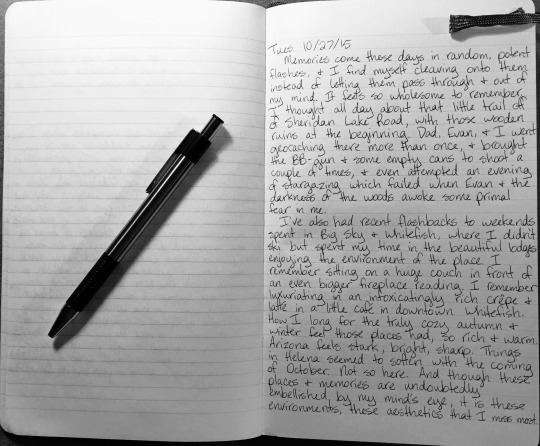 Tues. 10/27/15
Memories come these days in random, potent
flashes, & I find myself cleaving onto them
instead of letting them pass through & out of
my mind. It feels so wholesome to remember.
I thought all day about that little trail off
of Sheridan Lake Road, with those wooden
ruins at the beginning. Dad, Evan, & I went
geocaching there more than once, & brought
the BB-gun & some empty cans to shoot a
couple of times, & even attempted an evening
of stargazing which failed when Evan & the
darkness of the woods awoke some primal
fear in me.
I've also had recent flashbacks to weekends
spent in Big Sky & Whitefish, where I didn't
ski but spent my time in the beautiful lodges
enjoying the environment of the place. I
remember sitting on a huge couch in front of
an even bigger fireplace reading. I remember
luxuriating in an intoxicatingly rich crêpe &
latte in a little cafe in downtown Whitefish.
How I long for the truly cozy autumn &
winter feel those places had, so rich & warm.
Arizona feels stark, bright, sharp. Things
in Helena seemed to soften with the coming
of October. Not so here. And though these
places & memories are undoubtedly
embellished by my mind's eye, it is these
environments, these aesthetics that I miss most.